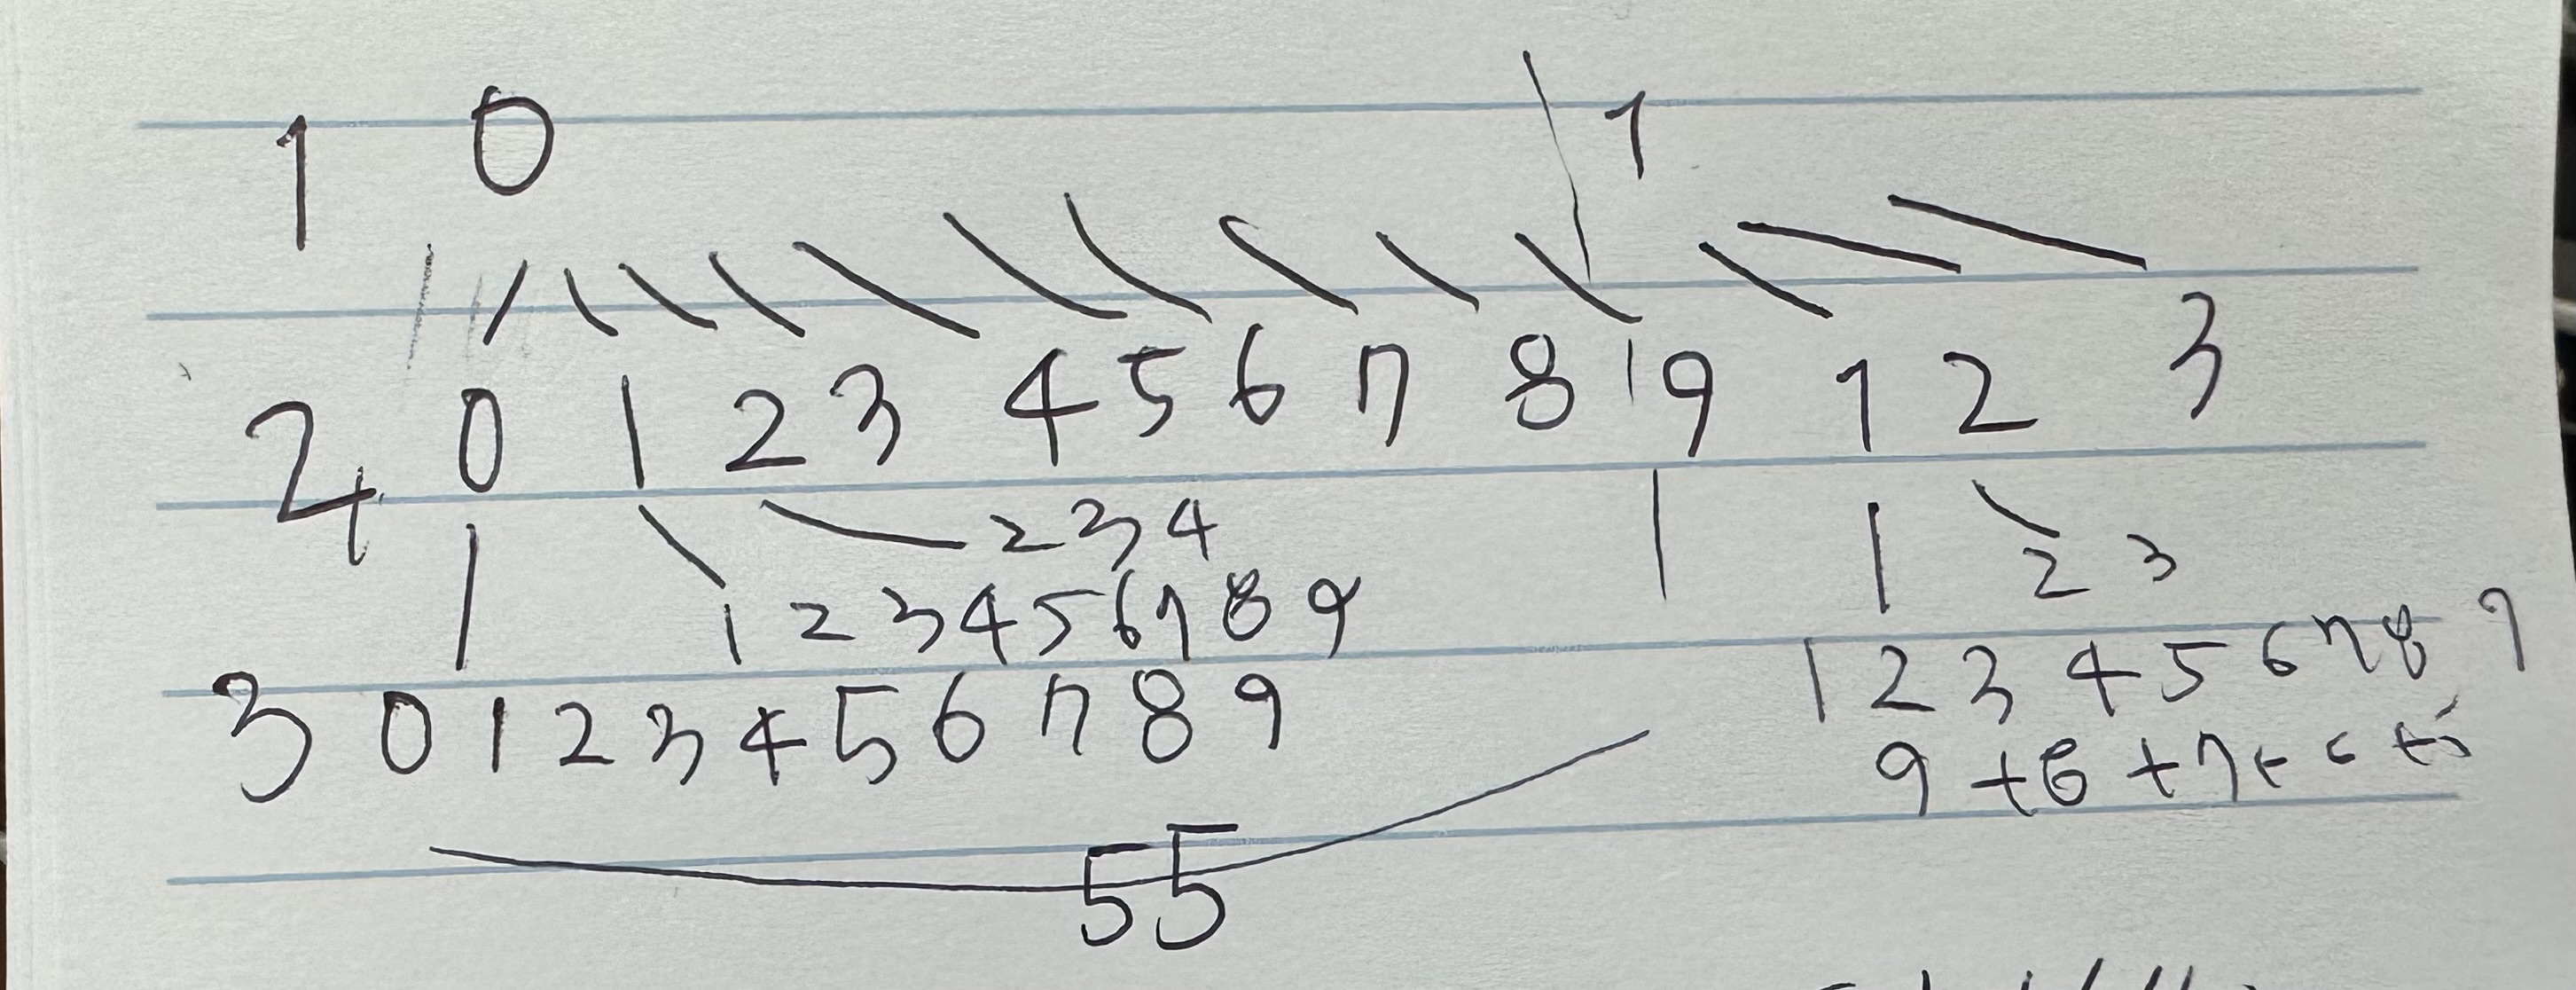 1 0 1
2 0 1 2 3 4 5 6 7 8 9 1 2 3
2 3 4 2 3
1 2 3 4 5 6 7 8 9 1 2 3 4 5 6 7 8 9
3 0 1 2 3 4 5 6 7 8 9 9 + 8 + 7 + 6 + 5
55